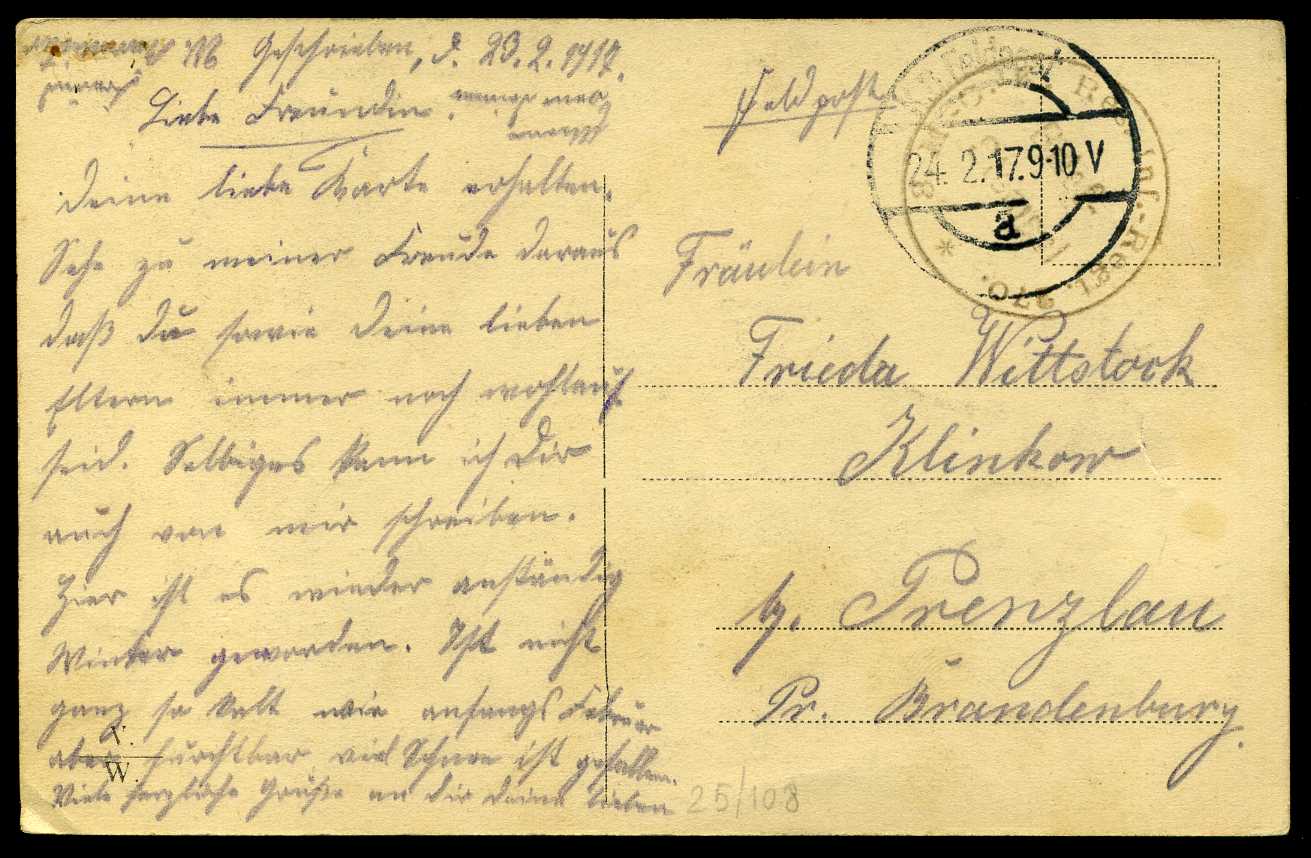 Geschrieben, d. 23.2.1917.
Liebe Freundin.
Deine liebe Karte erhalten.
Sehe zu meiner Freude daraus
daß du sowie Deine lieben
Eltern immer noch wohlauf
seid. Selbiges kann ich Dir
auch von mir schreiben.
Hier ist es wieder anständig
Winter geworden. Ist nicht
ganz so kalt wie anfangs Februar
aber furchtbar viel Schnee ist gefallen.
Viele herzliche Grüße an dir deine lieben
V.
W.
Feldpost
24. 2. 17. 9-10 V
a
Res. Inf.-Regt. 270.
Fräulein
Frieda Wittstock
Klinkow
b/. Prenzlau
Pr. Brandenburg.
25/108